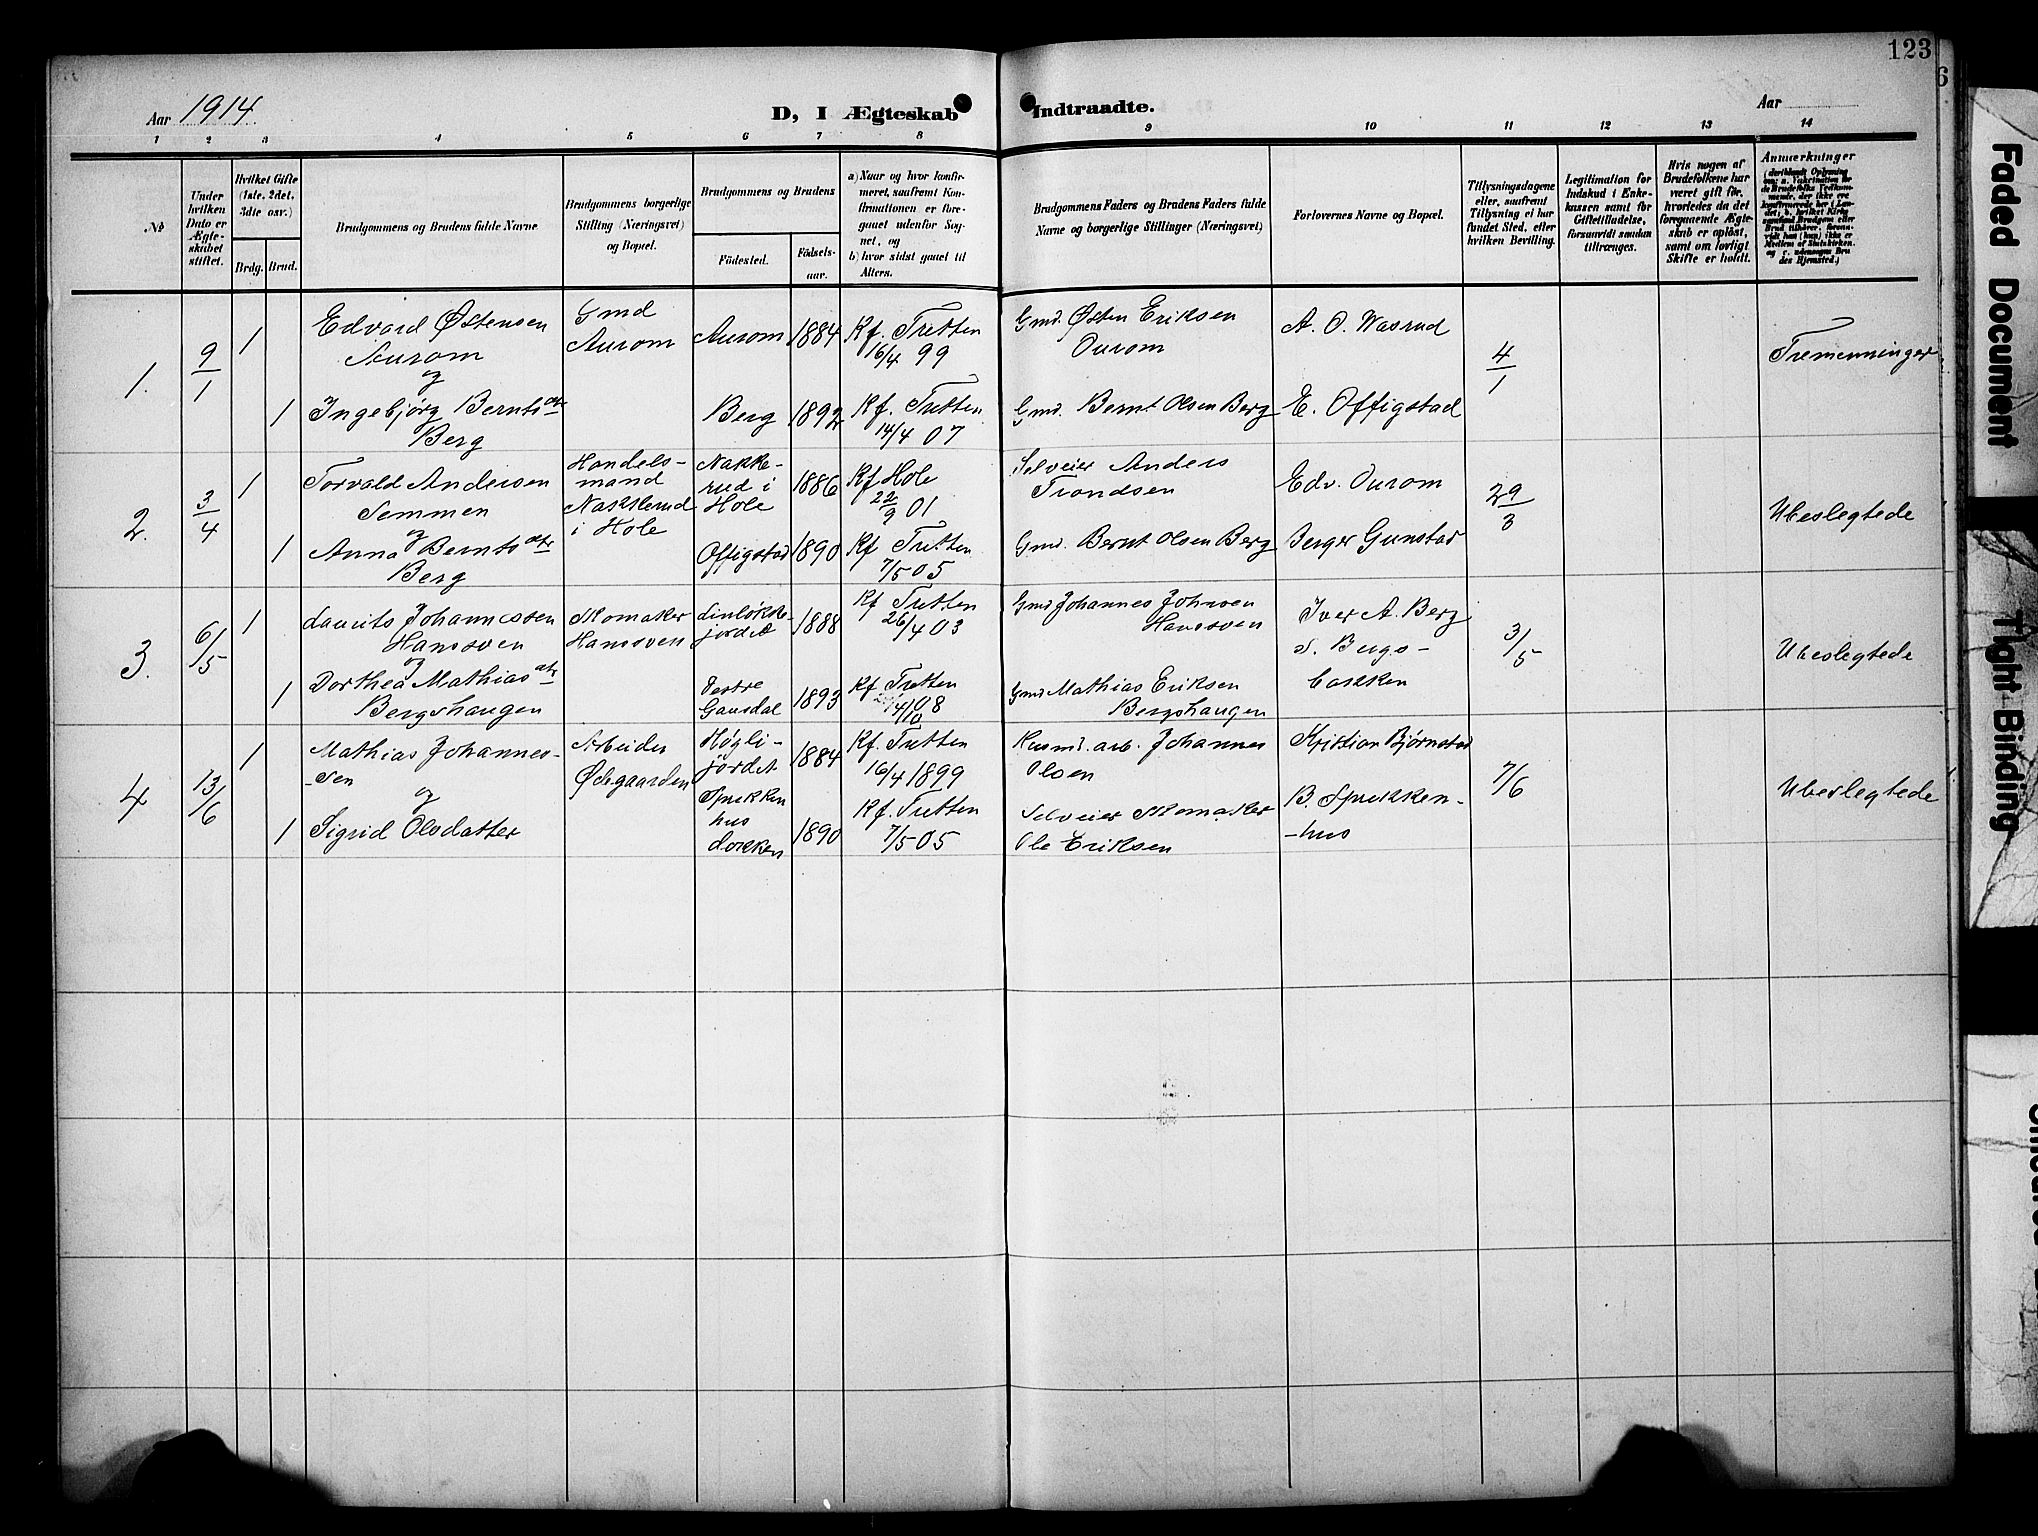 123
6
Aar 1914.
D, I Ægteskab Indtraadte.
Aar
1 2 3 4 5 6 7 8 9 10 11 12 13 14
№
Under hvilken Dato er Ægteskabet stiftet.
Hvilket Gifte (1ste, 2det, 3die osv.)
Brdg. Brud.
Brudgommens og Brudens fulde Navne
Brudgommens borgerlige Stilling (Næringsvei) og Bopæl.
Brudgommens og Brudens
Födested.
Födselsaar.
a) Naar og hvor konfirmeret, saafremt Konfirmationen er foregaaet udenfor Sognet, og
b) hvor sidst gaaet til Alters.
Brudgommens Faders og Brudens Faders fulde Navne og borgerlige Stillinger (Næringsvei)
Forlovernes Navne og Bopæl.
Tillysningsdagene eller, saafremt Tillysning ei har fundet Sted, efter hvilken Bevilling.
Legitimation for Indskud i Enkekassen samt for Giftetilladelse, forsaavidt saadan tiltrænges.
Hvis nogen af Brudefolkene har været gift för, hvorledes da det foregaaende Ægteskab er oplöst, samt om lovligt Skifte er holdt.
Anmærkninger
1. 9/1
1 Edvard Østensen
Aurom
og
1 Ingebjørg Bernts dtr
Berg
Gmd
Aurom
Aurom 1884 Kf. Tretten
16/4 99
Berg 1892 Kf. Tretten
14/4 07
Gmd. Østen Eriksen
Ourom
Gmd. Bernt Olsen Berg
A. O. Wasrud
E. Offigstad
4/1
Tremenninger
2. 3/4
1 Torvald Andersen
Semmen
og
1 Anna Bernts dtr
Berg
Handels-
mand
Nakkerud
i Hole
Nakke-
rud i
Hole
1886 Kf Hole
22/9 01
Offigstad 1890 Kf Tretten
7/5 05
Selveier Anders
Trondsen
Gmd. Bernt Olsen Berg
Edv. Ourom
Berger Gunstad
29/3
Ubeslegtede
3. 6/5
1 Laurits Johannessen
Hanssven
og
1 Dorthea Mathias dtr
Bergshaugen
Skomaker
Hanssven
Linløkke-
jordet
1888 Kf Tretten
26/4 03
Vestre
Gausdal
1893 Kf. Tretten
4/10 08
Gmd Johannes Johnsen
Hanssven
Gmd Mathias Eriksen
Bergshaugen
Iver A. Berg
3/5
Ubeslegtede
4. 13/6
1 Mathias Johannes-
-sen
og
1 Sigrid Olsdatter
Arbeider
Ødegaarden
Høgli-
jordet
1884 Kf. Tretten
16/4 1899
Sprekken
hus
Lokken
1890 Kf. Tretten
7/5 05
Husmd. arb. Johannes
Olsen
Selveier Skomaker
Ole Eriksen
Kristian Bjørnstad
B. Sprekken-
-hus
7/6
Ubeslegtede
Faded Document
Tight Binding